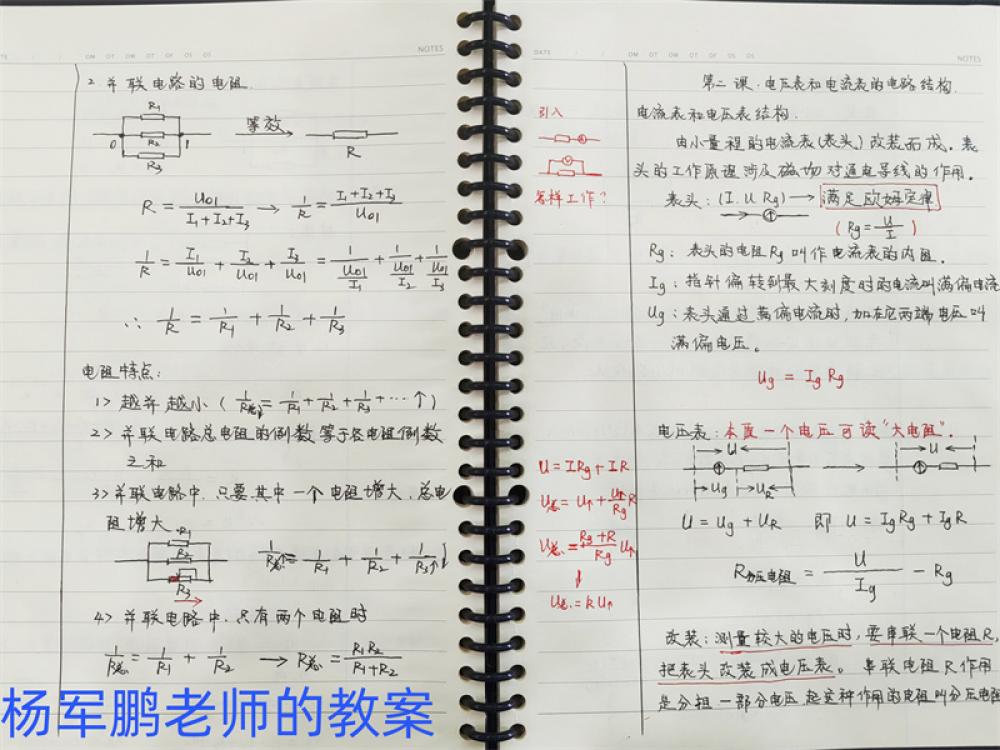 NOTES
2. 并联电路的电阻.
R1
R2
R3
0
1
等效
R
R = U01 / (I1+I2+I3) → 1/R = (I1+I2+I3) / U01
1/R = I1/U01 + I2/U01 + I3/U01 = 1/(U01/I1) + 1/(U01/I2) + 1/(U01/I3)
∴ 1/R = 1/R1 + 1/R2 + 1/R3
电阻特点:
1> 越并越小 ( 1/R总↓ = 1/R1 + 1/R2 + 1/R3 + … ↑)
2> 并联电路总电阻的倒数等于各电阻倒数
之和
3> 并联电路中, 只要其中一个电阻增大, 总电
阻增大
R1
R2
R3
1/R总↑ = 1/R1 + 1/R2 + 1/R3↑ ↓
4> 并联电路中, 只有两个电阻时
1/R总 = 1/R1 + 1/R2 → R总 = R1R2 / (R1+R2)
杨军鹏老师的教案
DATE
NOTES
第二课. 电压表和电流表的电路结构.
引入
怎样工作?
电流表和电压表结构.
由小量程的电流表(表头)改装而成. 表
头的工作原理涉及磁场对通电导线的作用.
表头: (I. U Rg) → 满足欧姆定律
( Rg = U/I )
Rg: 表头的电阻Rg叫作电流表的内阻.
Ig: 指针偏转到最大刻度时的电流叫满偏电流
Ug: 表头通过满偏电流时, 加在它两端电压叫
满偏电压.
Ug = Ig Rg
电压表: 本质一个电压可读"大电阻".
U
Ug
UR
U
U = Ug + UR 即 U = IgRg + IgR
R分压电阻 = U/Ig - Rg
U = IRg + IR
U总 = U↑ + U↑/Rg R
U总 = (Rg+R)/Rg U↑
↓
U总 = k U↑
改装: 测量较大的电压时, 要串联一个电阻R,
把表头改装成电压表. 串联电阻R作用
是分担一部分电压 起这种作用的电阻叫分压电阻